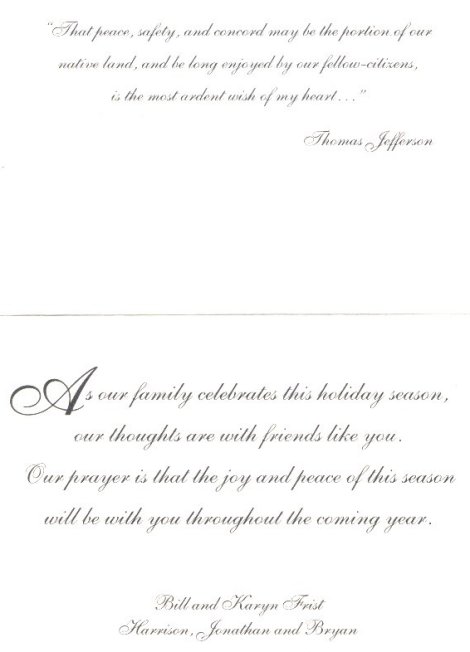 “That peace, safety, and concord may be the portion of our
native land, and be long enjoyed by our fellow-citizens,
is the most ardent wish of my heart...”
Thomas Jefferson
As our family celebrates this holiday season,
our thoughts are with friends like you.
Our prayer is that the joy and peace of this season
will be with you throughout the coming year.
Bill and Karyn Frist
Harrison, Jonathan and Bryan